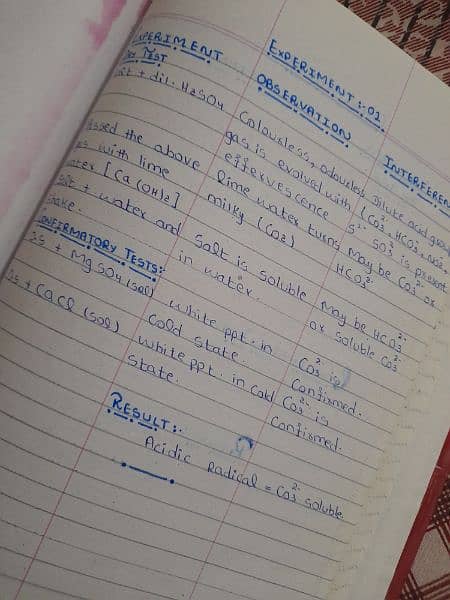 EXPERIMENT :- 01
EXPERIMENT
OBSERVATION
TEST
+ dil. H2SO4
Colourless, odourless
gas is evolved with
effervescence
Dilute acid group
is present
the above
with lime
[Ca(OH)2]
lime water turns
milky (CO2)
May be CO3 2- or
HCO3 2-
+ water and
Salt is soluble
in water.
May be HCO3 2-
or soluble CO3 2-
CONFIRMATORY TESTS:-
+ MgSO4 (sol)
White ppt. in
cold state.
CO3 2- is
Confirmed.
+ CaCl (sol)
White ppt. in cold
state.
CO3 2- is
Confirmed.
RESULT:-
Acidic Radical = CO3 2- soluble.